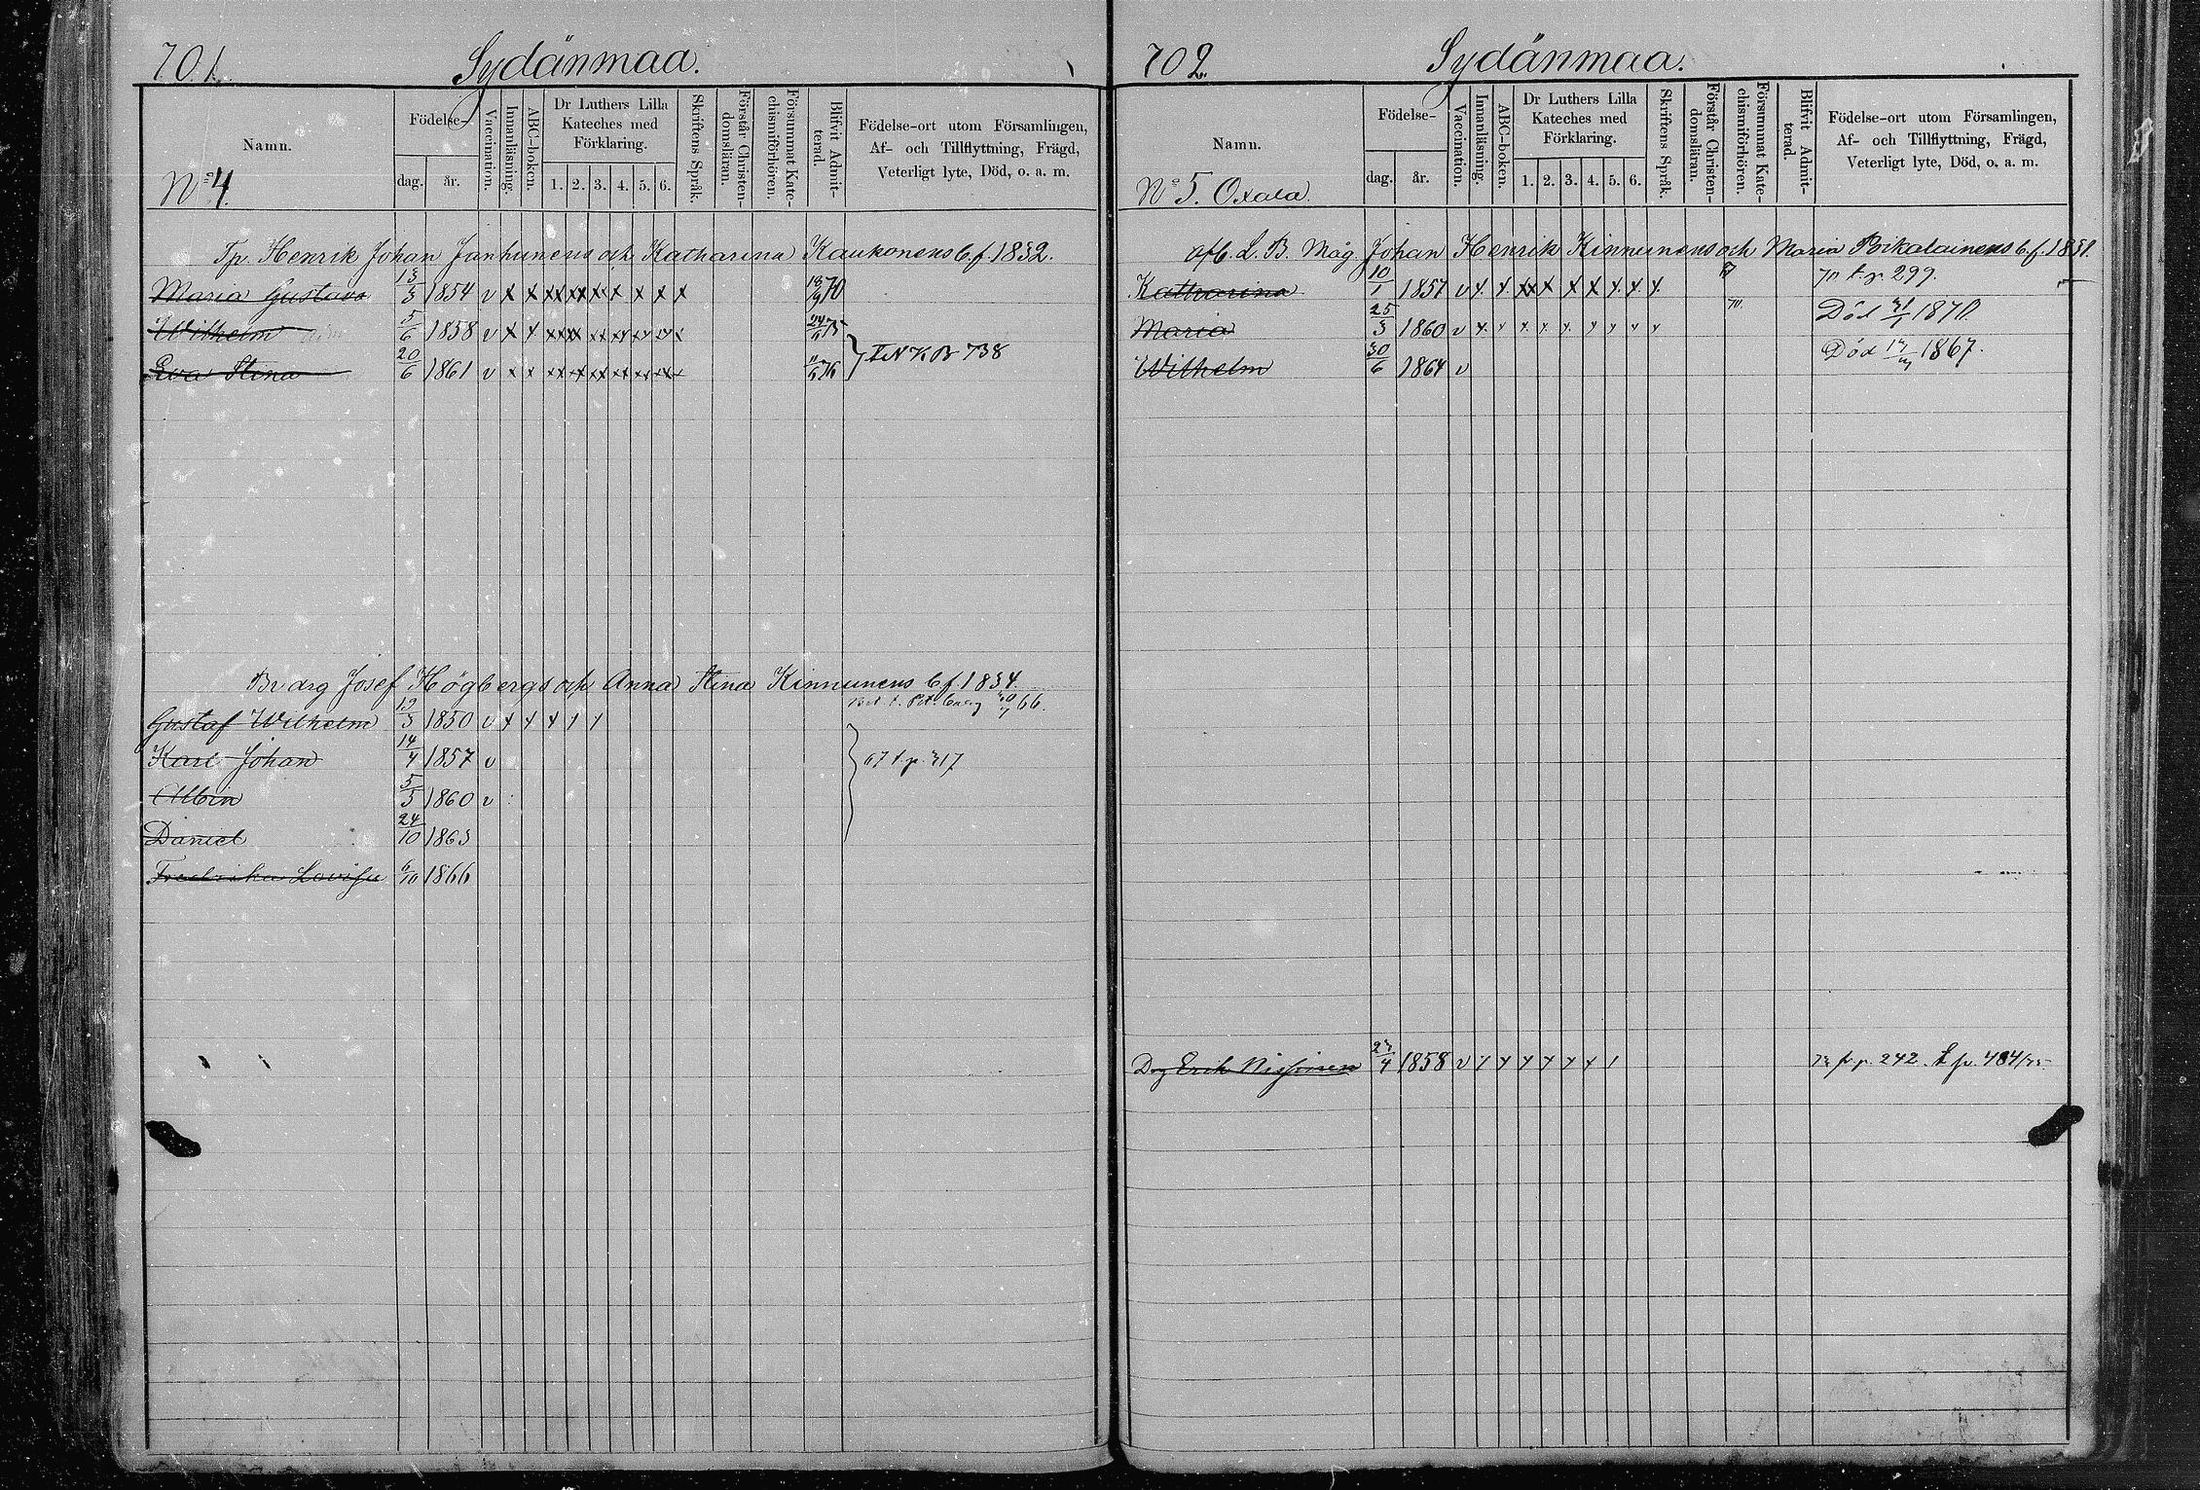 701.
Sydänmaa.
Namn.
Födelse-
dag.
år.
Vaccination.
Innanläsning.
ABC-boken.
Dr Luthers Lilla
Kateches med
Förklaring.
1. 2. 3. 4. 5. 6.
Skriftens Språk.
Förstår Christen-
domsläran.
Försummat Kate-
chismiförhören.
Blifvit Admit-
terad.
Födelse-ort utom Församlingen,
Af- och Tillflyttning, Frägd,
Veterligt lyte, Död, o. a. m.
No 4.
Tp. Henrik Johan Janhunens och Katharina Kaukonens b.f. 1832.
Maria Gustava 13/3 1854 v x x xx xx xx x x x x 70
Wilhelm 5/6 1858 v x x
Eva Stina 20/6 1861 v x x 738
Josef Högbergs och Anna Stina Kinnunens b.f. 1834.
Gustaf Wilhelm 19/3 1850 v x x x 1 1 66.
Karl Johan 14/4 1857 v 67 t. p. 317
Albin 5/5 1860 v
Daniel 24/10 1863
Fredrika Lovisa 6/10 1866
702.
Sydänmaa.
Namn.
Födelse-
dag.
år.
Vaccination.
Innanläsning.
ABC-boken.
Dr Luthers Lilla
Kateches med
Förklaring.
1. 2. 3. 4. 5. 6.
Skriftens Språk.
Förstår Christen-
domsläran.
Försummat Kate-
chismiförhören.
Blifvit Admit-
terad.
Födelse-ort utom Församlingen,
Af- och Tillflyttning, Frägd,
Veterligt lyte, Död, o. a. m.
No 5. Oxala.
L. B. Måg Johan Henrik Kinnunens och Maria Pikalainens b.f. 1851.
Katharina 10/1 1857 v x x xx x x x x x x t. p. 299.
Maria 25/3 1860 v x x x x x x x x x Död 1870
Wilhelm 30/6 1864 v Död 1867.
Erik 1858 v p. 242. t. p. 484